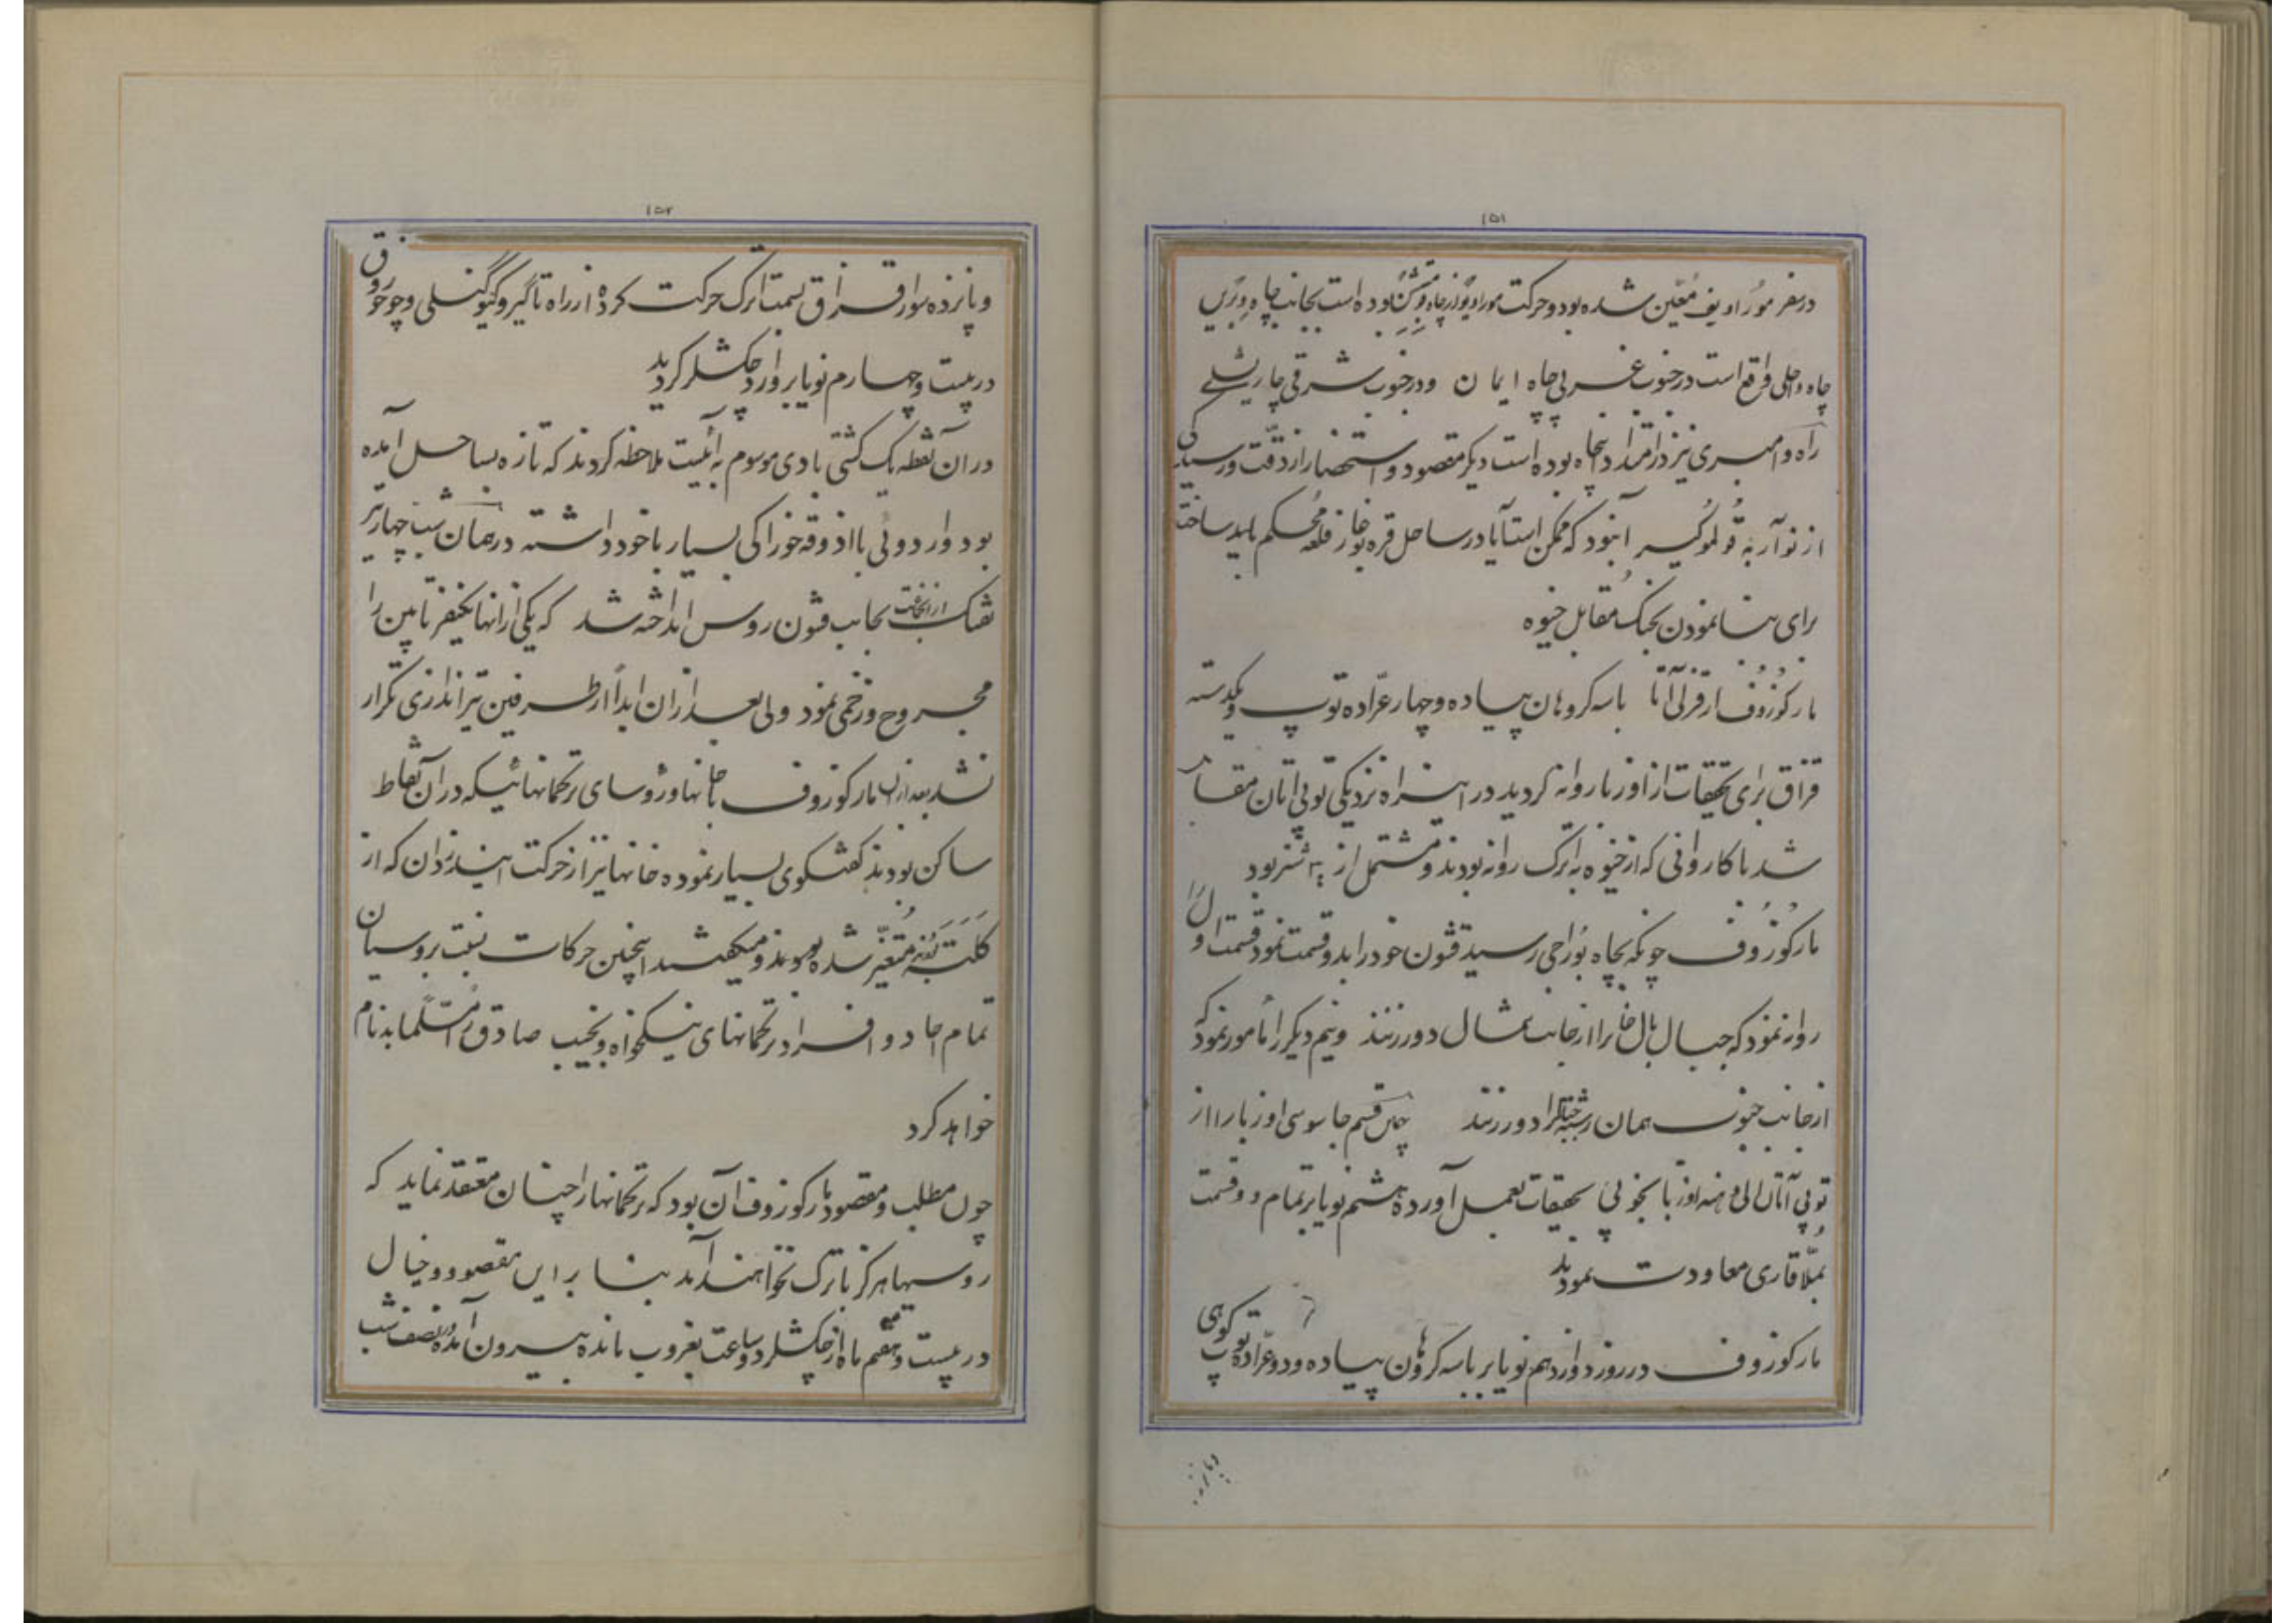 ۱۵۱
در سفر مورّاویف معیّن شده بود و حرکت موراویف از چاه بوده است بجانب چاه
چاه و حلی واقع است در جنوب غربی چاه ایمان و در جنوب شرقی چاریشلی
راه و امیری نیز در امتداد پنجاه بوده است دیگر مقصود و استحضار از دقت ورسیدگی
از نوآر به قولموگیر آن بود که ممکن است آیا در ساحل قره بوغاز قلعه محکم باید ساخت
برای بنا نمودن بجنگ مقابل خیوه
مارکوزوف از قزل آتا با سه کروهان پیاده و چهار عرّاده توپ و یکدسته
قزاق برای تحقیقات از اوزبا روانه گردید در این راه نزدیکی توپی اتان مقابل
شد با کاروانی که از خیوه به اترک روانه بودند و مشتمل از شتر بود
مارکوزوف چونکه بچاه بوراجی رسید قشون خود را بدو قسمت نمود قسمت اول را
روانه نمود که جبال بالخان را از جانب شمال دور زنند و نیم دیگر را مأمور نمود که
از جانب جنوب همان رشته جبال را دور زنند چنین قسم جاسوسی اوزبا را از
توپی آتان الی دهنه اوزبا بخوبی تحقیقات بعمل آورده هشتم نویابر تمام دو قسمت
بملّاقاری معاودت نمودند
مارکوزوف در روز دوازدهم نویابر با سه کروهان پیاده و دو عرّاده توپ کوهی
و پانزده
۱۵۲
و پانزده سوار قزاق بسمت اترک حرکت کرده از راه تاگیر و کیوگنلی و چوخوروق
در بیست و چهارم نویابر وارد چکشلر گردید
در آن نقطه یک کشتی بادی موسوم به آنیت ملاحظه کردند که تازه بساحل آمده
بود و اردوئی با آذوقه خوراکی بسیار با خود داشته در همان شب چهار تیر
تفنگ از آنجانب بجانب قشون روس انداخته شد که یکی از آنها یکنفر تابین را
مجروح و زخمی نمود ولی بعد از آن ابداً از طرفین تیراندازی تکرار
نشد بعد از آن مارکوزوف با خانها و رؤسای ترکمانهائیکه در آن نقاط
ساکن بودند گفتگوی بسیار نموده خانها نیز از حرکت این دزدان که از
کلته متغیّر شده بودند و میگفتند اینچنین حرکات نسبت بروسیان
تمام احاد و افراد ترکمانهای نیکخواه و نجیب صادق را مسلّماً بدنام
خواهد کرد
چون مطلب و مقصود مارکوزوف آن بود که ترکمانها را چنان معتقد نماید که
روسها هرگز باترک نخواهند آمد بنا بر این مقصود و خیال
در بیست و هفتم ماه از چکشلر دو ساعت بغروب مانده بیرون آمده و نصف شب